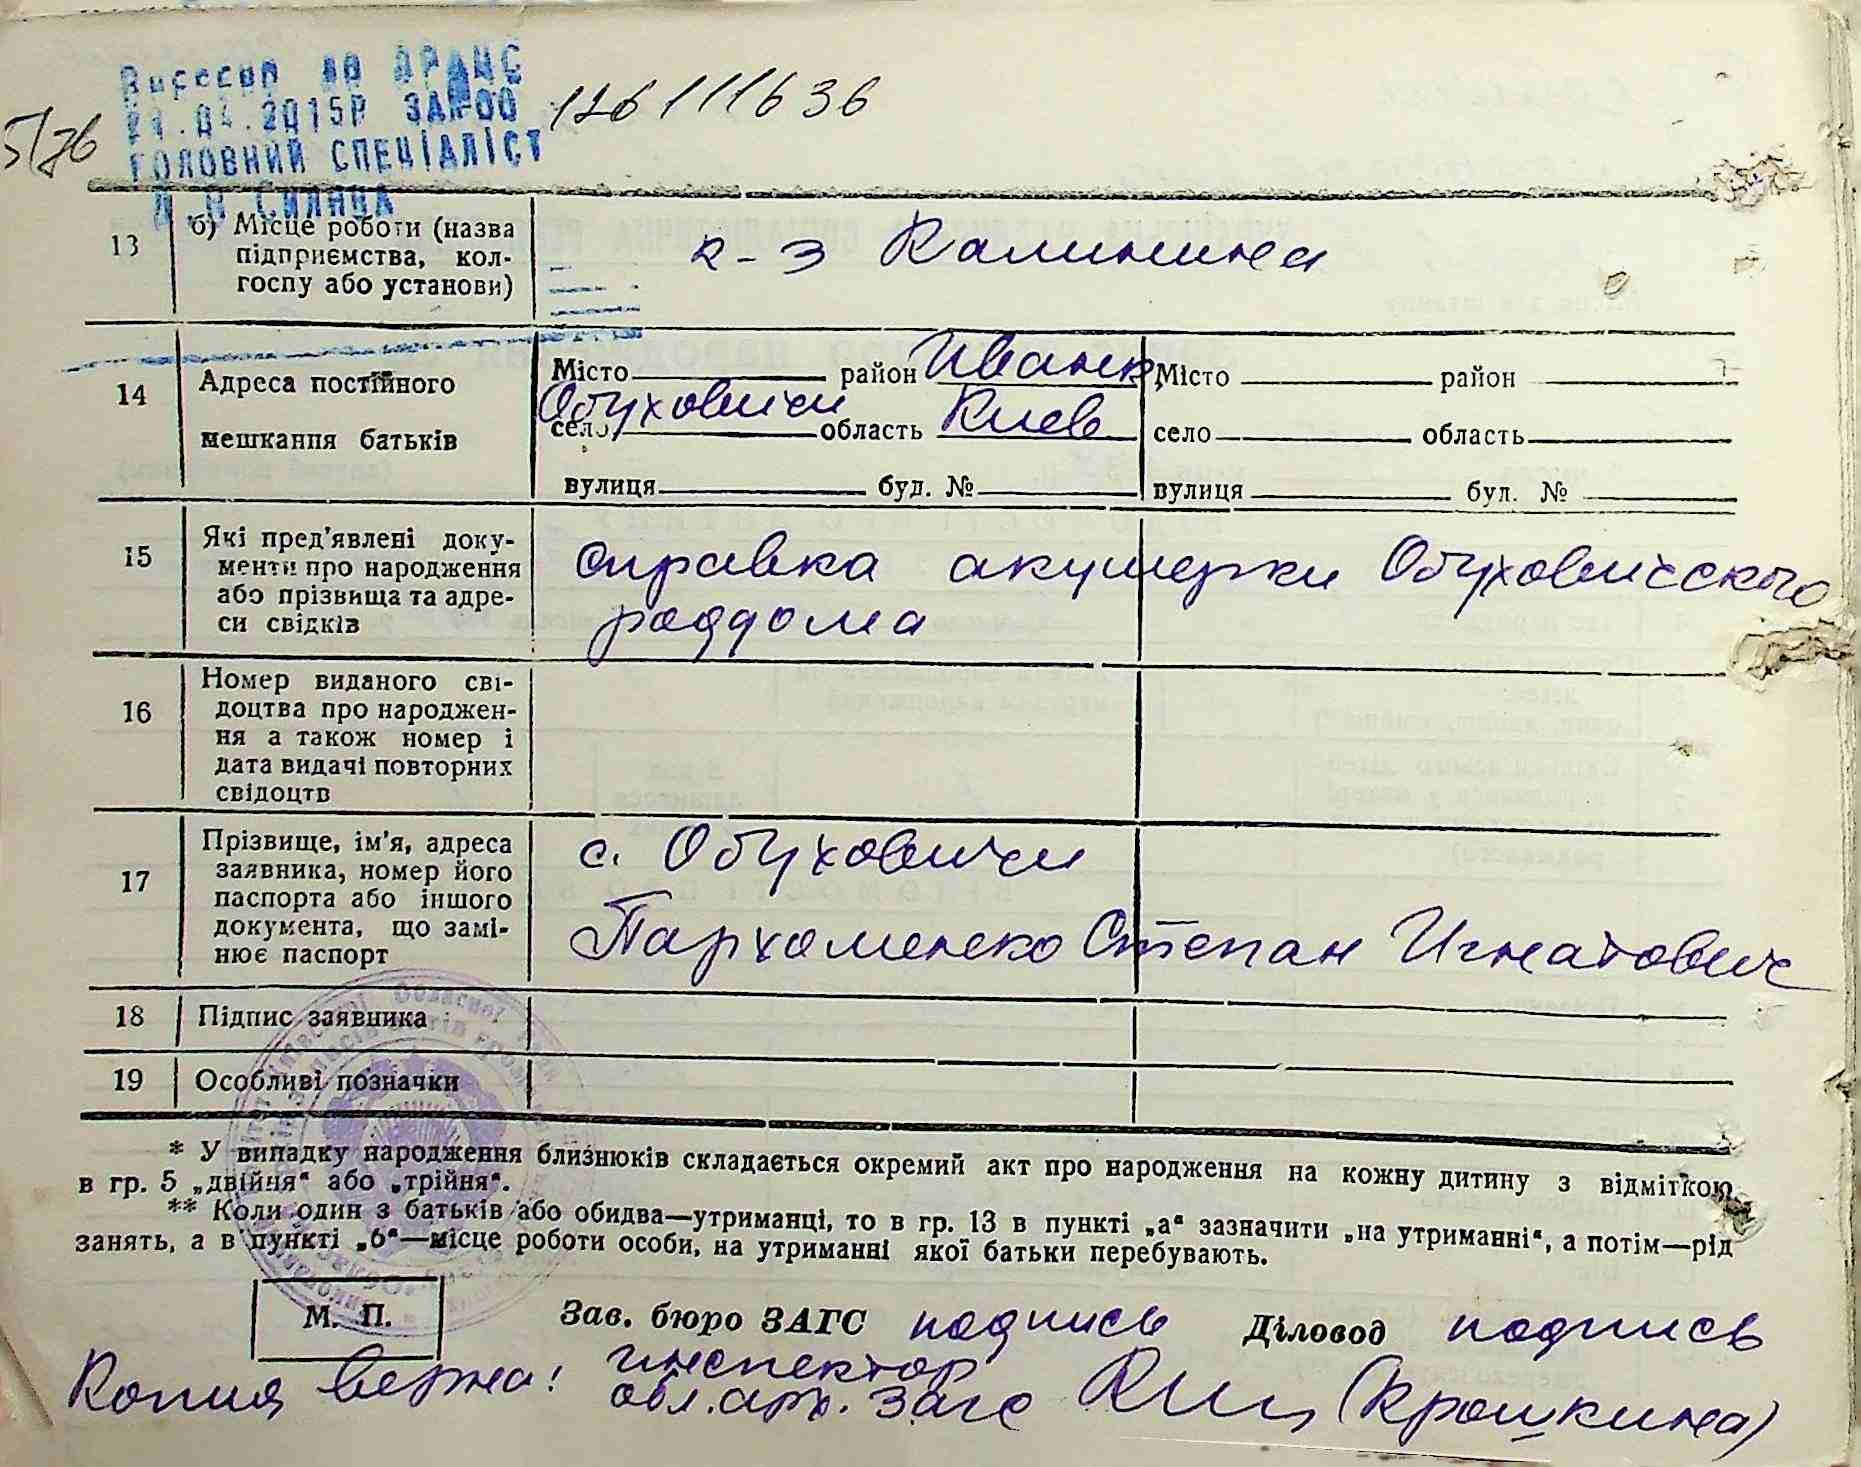 Внесено до ДРАЦС
21.04.2015р ЗА №00
ГОЛОВНИЙ СПЕЦІАЛІСТ
5/76
126111636
13
б) Місце роботи (назва
підприємства, кол-
госпу або установи)
к-з Калинина
14
Адреса постійного
мешкання батьків
Місто район Иванк.
Обуховичи
село область Киев
вулиця буд. №
Місто район
село область
вулиця буд. №
15
Які пред'явлені доку-
менти про народження
або прізвища та адре-
си свідків
справка акушерки Обуховичского
роддома
16
Номер виданого сві-
доцтва про народжен-
ня а також номер і
дата видачі повторних
свідоцтв
17
Прізвище, ім'я, адреса
заявника, номер його
паспорта або іншого
документа, що замі-
нює паспорт
с. Обуховичи
Пархоменко Степан Игнатович
18
Підпис заявника
19
Особливі позначки
* У випадку народження близнюків складається окремий акт про народження на кожну дитину з відміткою
в гр. 5 „двійня“ або „трійня“.
** Коли один з батьків або обидва—утриманці, то в гр. 13 в пункті „а“ зазначити „на утриманні“, а потім—рід
занять, а в пункті „б“—місце роботи особи, на утриманні якої батьки перебувають.
М. П.
Зав. бюро ЗАГС подпись Діловод подпись
Копия верна! инспектор
обл. арх. Загс (Крошкина)